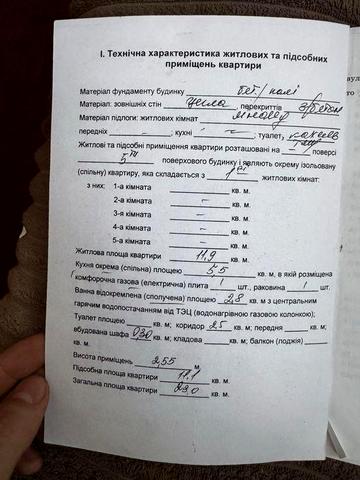 І. Технічна характеристика житлових та підсобних
приміщень квартири
Матеріал фундаменту будинку бет/палі
Матеріал: зовнішніх стін цегла, перекриттів з/бетон
Матеріал підлоги: житлових кімнат лінолеум
передніх –, кухні –, туалет, кахель
Житлові та підсобні приміщення квартири розташовані на – поверсі
5ти поверхового будинку і являють окрему ізольовану
(спільну) квартиру, яка складається з 1єї житлових кімнат:
з них: 1-а кімната – кв. м.
2-а кімната – кв. м.
3-я кімната – кв. м.
4-а кімната – кв. м.
5-а кімната – кв. м.
Житлова площа квартири 11,9 кв. м.
Кухня окрема (спільна) площею 5,5 кв. м, в якій розміщена
комфорочна газова (електрична) плита 1 шт., раковина 1 шт.
Ванна відокремлена (сполучена) площею 2,8 кв. м з центральним
гарячим водопостачанням від ТЕЦ (водонагрівною газовою колонкою);
Туалет площею кв. м; коридор 2,5 кв. м; передня кв. м;
вбудована шафа 0,30 кв. м; кладова кв. м; балкон (лоджія)
кв. м.
Висота приміщень 2,55 м.
Підсобна площа квартири 11,1 кв. м.
Загальна площа квартири 23,0 кв. м.